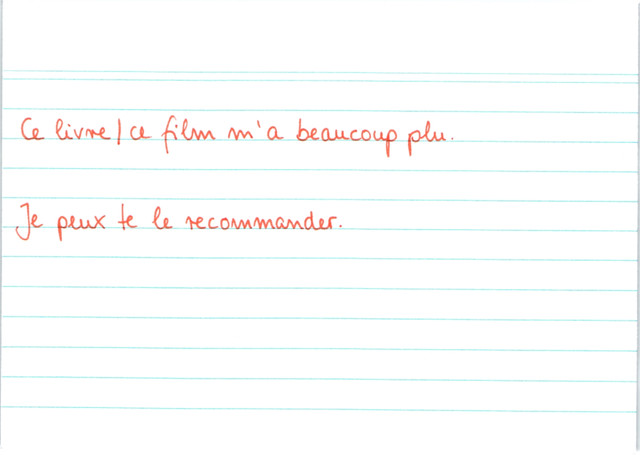 Ce livre / ce film m'a beaucoup plu.
Je peux te le recommander.